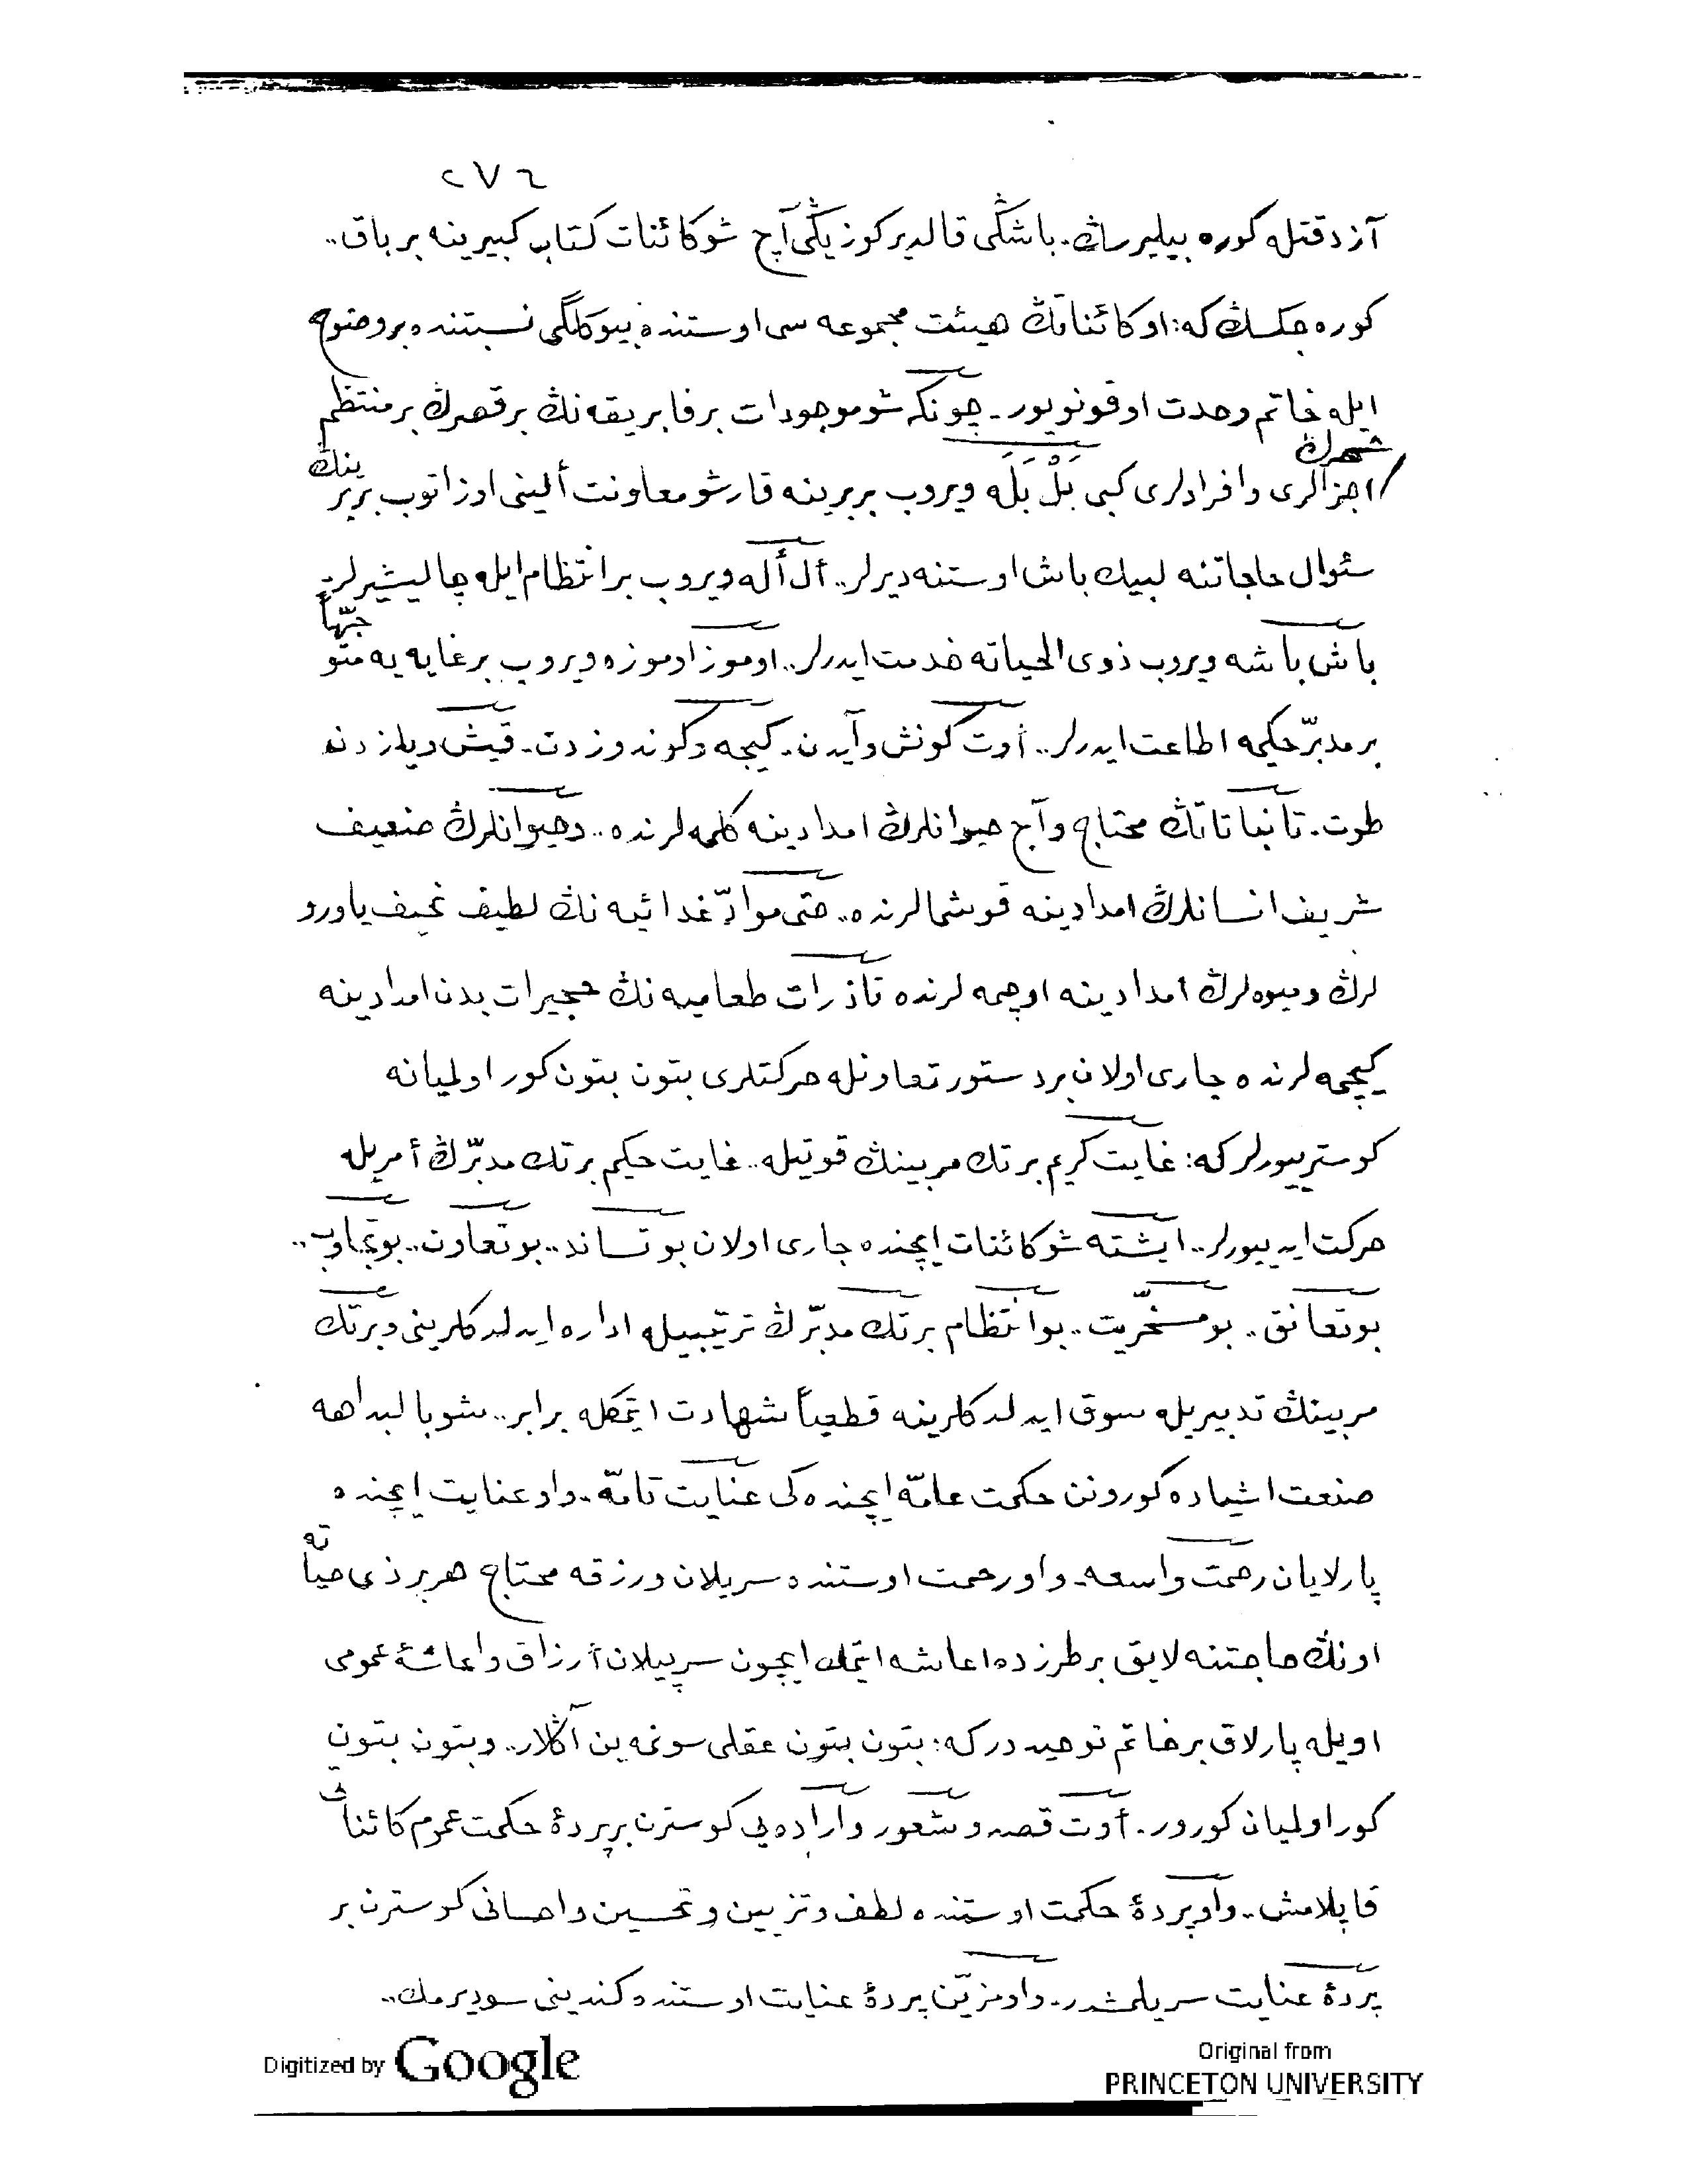 ٢٧٦
آز دقتله كوره بيليرسڭ. باشڭى قالدير كوزيڭى آچ شو كائنات كتاب كبيرينه بر باق..
كوره جكسڭ كه: او كائناتڭ هيئت مجموعه سى اوستنده بيوكلگى نسبتنده بر وضوح
ايله خاتم وحدت اوقونويور. چونكه شو موجودات بر فابريقه نڭ بر قصرڭ بر منتظم شهرڭ
اجزالرى وافرادلرى كبى بَلْ بَلَه ويروب بربرينه قارشو معاونت ألينى اوزاتوب بربرينڭ
سئوال حاجاتنه لبيك باش اوستنه ديرلر.. أل أله ويروب بر انتظام ايله چاليشيرلر.
باش باشه ويروب ذوى الحياته خدمت ايدرلر.. اوموز اوموزه ويروب بر غايه يه متوجّهاً
بر مدبّر حكيمه اطاعت ايدرلر.. أوت كونش وآيدن. كيجه وكوندوزدن. قيش ويازدن
طوت. تا نباتاتڭ محتاج وآج حيوانلرڭ امدادينه كلمه لرنده.. وحيوانلرڭ ضعيف
شريف انسانلرڭ امدادينه قوشمالرنده.. حتى موادّ غدائيه نڭ لطيف نحيف ياورو
لرڭ وميوه لرڭ امدادينه اوچمه لرنده تا ذرات طعاميه نڭ حجيرات بدن امدادينه
كچمه لرنده جارى اولان بر دستور تعاونله حركتلرى بتون بتون كور اولميانه
كوستريیورلر كه: غايت كريم بر تك مربينڭ قوتيله.. غايت حكيم بر تك مدبّرڭ أمريله
حركت ايدييورلر.. ايشته شو كائنات ايچنده جارى اولان بو تساند.. بو تعاون.. بو تجاوب..
بو تعانق.. بو مسخّريت.. بو انتظام بر تك مدبّرڭ ترتيبيله اداره ايدلدكلرينى وبر تك
مربينڭ تدبيريله سوق ايدلدكلرينه قطعياً شهادت ايتمكله برابر.. شو بالبداهه
صنعت اشياده كورونن حكمت عامّه ايچنده كى عنايت تامّه. واو عنايت ايچنده
پارلايان رحمت واسعه. واو رحمت اوستنده سريلان ورزقه محتاج هر بر ذى حياته
اونڭ حاجتنه لايق بر طرزده اعاشه ايتمك ايچون سرپيلان أرزاق واعاشۀ عمومى
اويله پارلاق بر خاتم توحيددر كه: بتون بتون عقلى سونمه ين آڭلار.. وبتون بتون
كور اولميان كورور. أوت قصد وشعور واراده يى كوسترن بر پردۀ حكمت عموم كائناتى
قاپلامش. واو پردۀ حكمت اوستنده لطف وتزيين وتحسين واحسانى كوسترن بر
پردۀ عنايت سريلمشدر. واو مزيّن پردۀ عنايت اوستنده كندينى سوديرمك..
Digitized by Google
Original from
PRINCETON UNIVERSITY